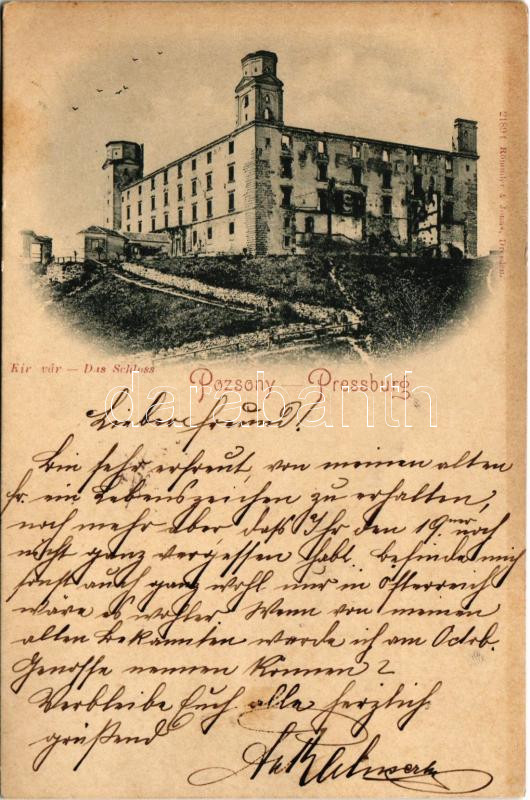 21891 Römmler & Jonas, Dresden.
Kir vár — Das Schloss
Pozsony — Pressburg
darabanth
Lieber Freund!
Bin sehr erfreut, von meinen alten
fr. ein Lebenszeichen zu erhalten,
noch mehr aber daß Ihr den 19ner noch
nicht ganz vergessen habt. Befinde mich
sonst auch ganz wohl nur in Österreich
wäre es wohler Wenn von meinen
alten Bekannten werde ich am Octob.
Genosse nennen können?
Verbleibe Euch alle herzlich
grüßend